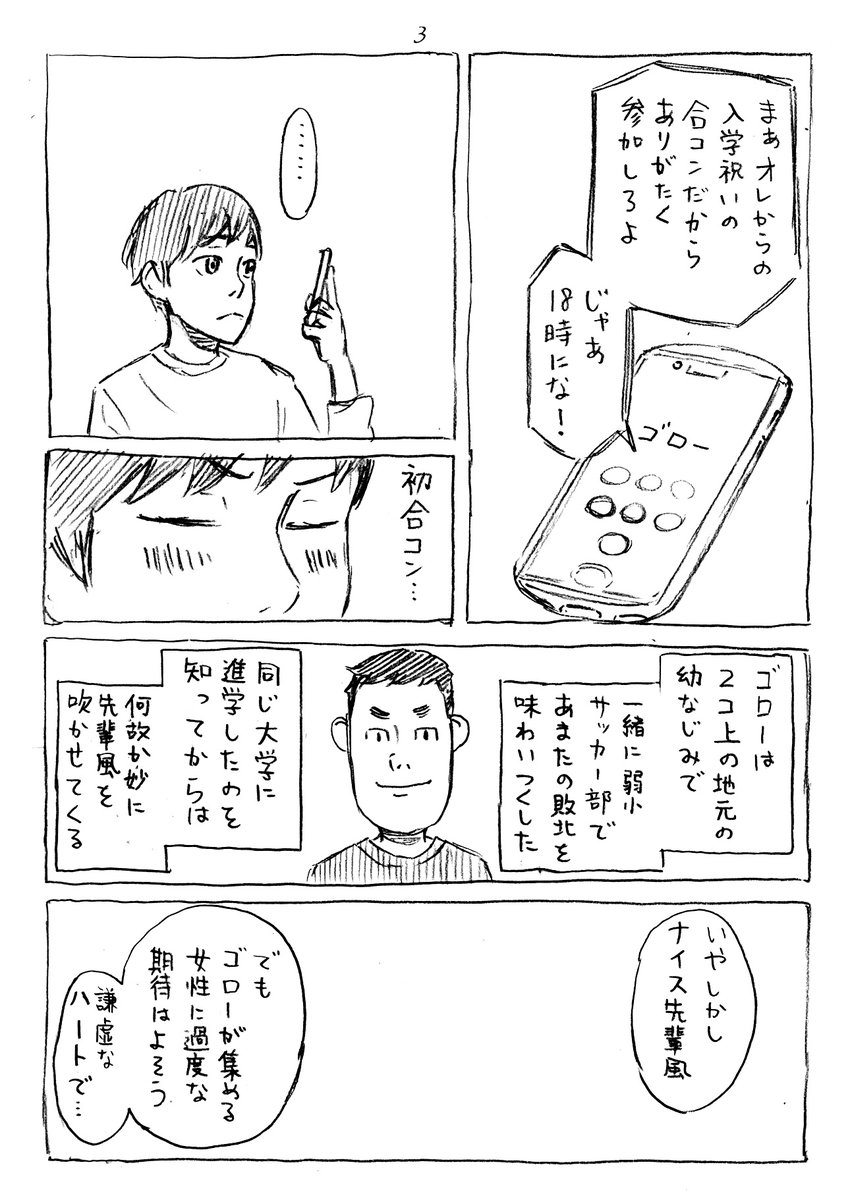 3
まあオレからの
入学祝いの
合コンだから
ありがたく
参加しろよ
じゃあ
18時にな！
ゴロー
……
初合コン…
ゴローは
2コ上の地元の
幼なじみで
一緒に弱小
サッカー部で
あまたの敗北を
味わいつくした
同じ大学に
進学したのを
知ってからは
何故か妙に
先輩風を
吹かせてくる
いやしかし
ナイス先輩風
でも
ゴローが集める
女性に過度な
期待はよそう
謙虚な
ハートで…